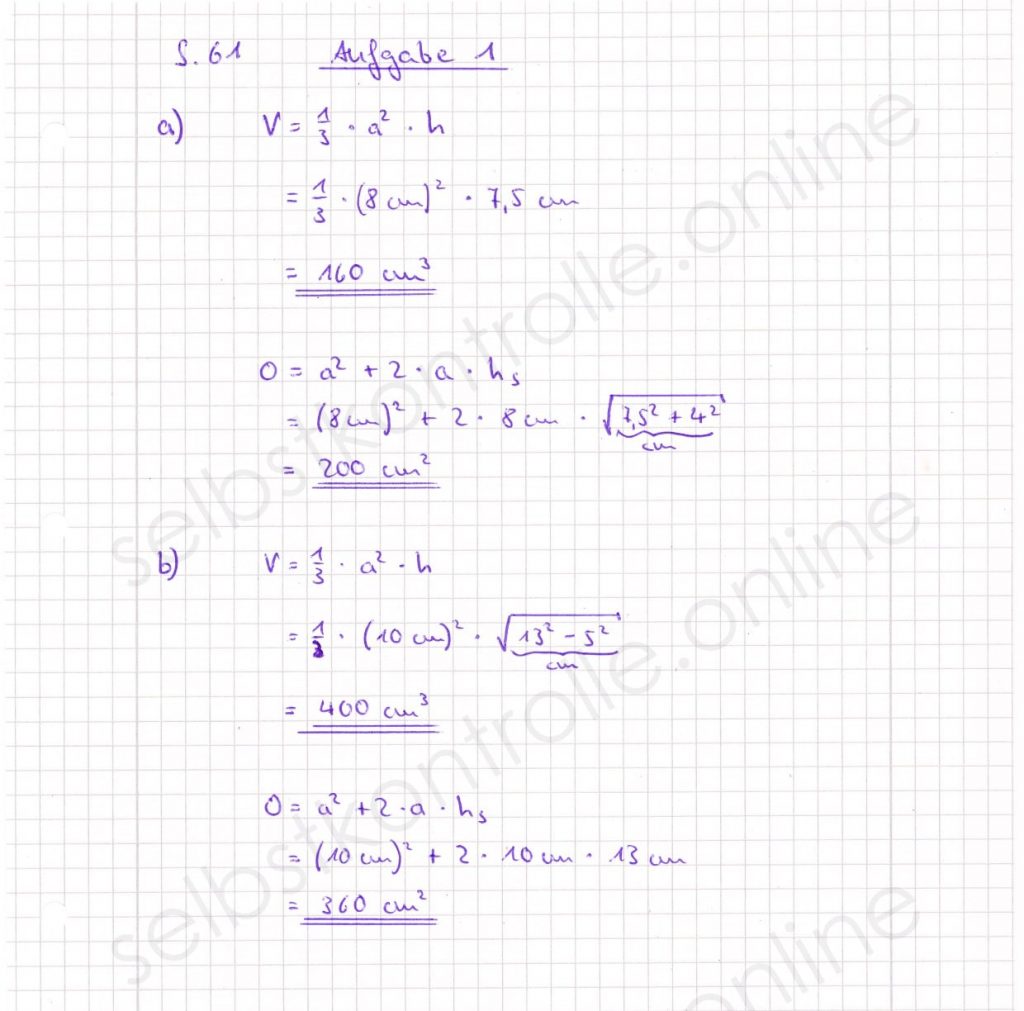 S. 61 Aufgabe 1
a) V = 1/3 · a² · h
= 1/3 · (8 cm)² · 7,5 cm
= 160 cm³
O = a² + 2 · a · hₛ
= (8 cm)² + 2 · 8 cm · √(7,5² + 4²) cm
= 200 cm²
b) V = 1/3 · a² · h
= 1/3 · (10 cm)² · √(13² − 5²) cm
= 400 cm³
O = a² + 2 · a · hₛ
= (10 cm)² + 2 · 10 cm · 13 cm
= 360 cm²
selbstkontrolle.online
selbstkontrolle.online
selbstkontrolle.online